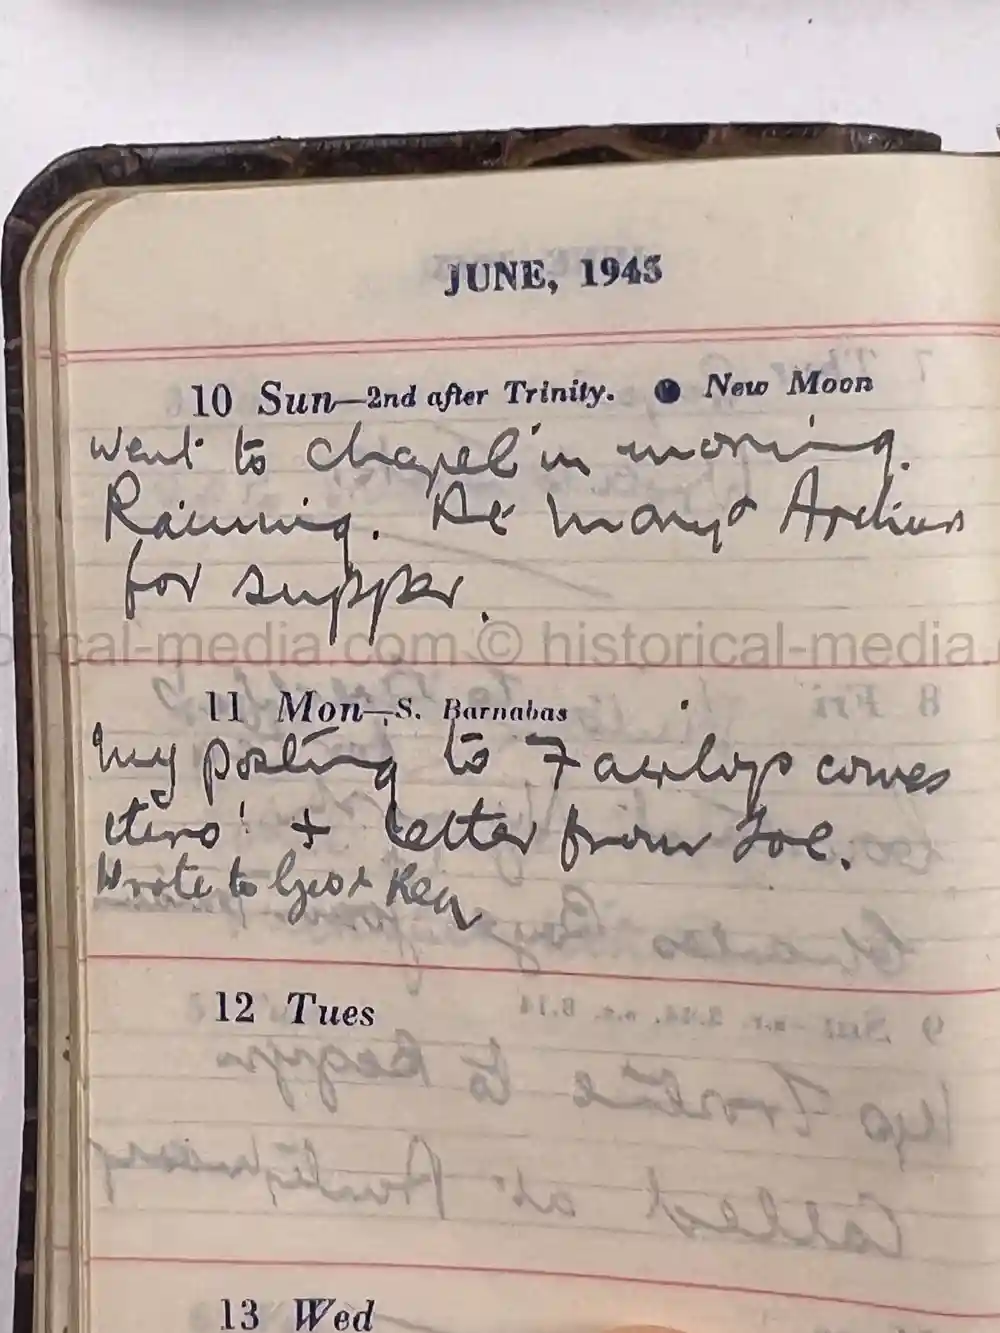 JUNE, 1945
10 Sun—2nd after Trinity. ● New Moon
Went to chapel in morning.
Raining. At Mary & Arthurs
for supper.
orical-media.com © historical-media.
11 Mon—S. Barnabas
My posting to Fairlop comes
thro' + letter from Joe.
Wrote to Geo & Reg
12 Tues
13 Wed